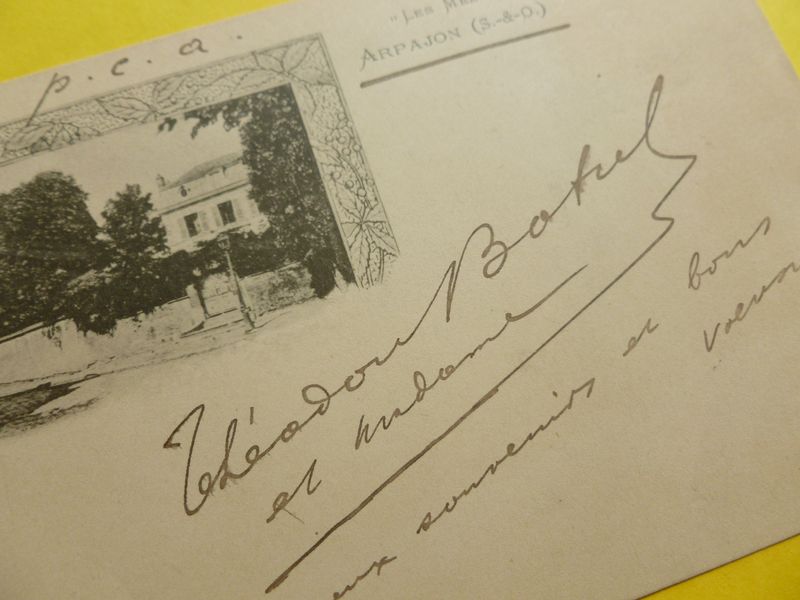 p.c.a.
"Les
Arpajon (S.-&-O.)
Théodore Botrel
et madame
souvenirs et bons
voeux